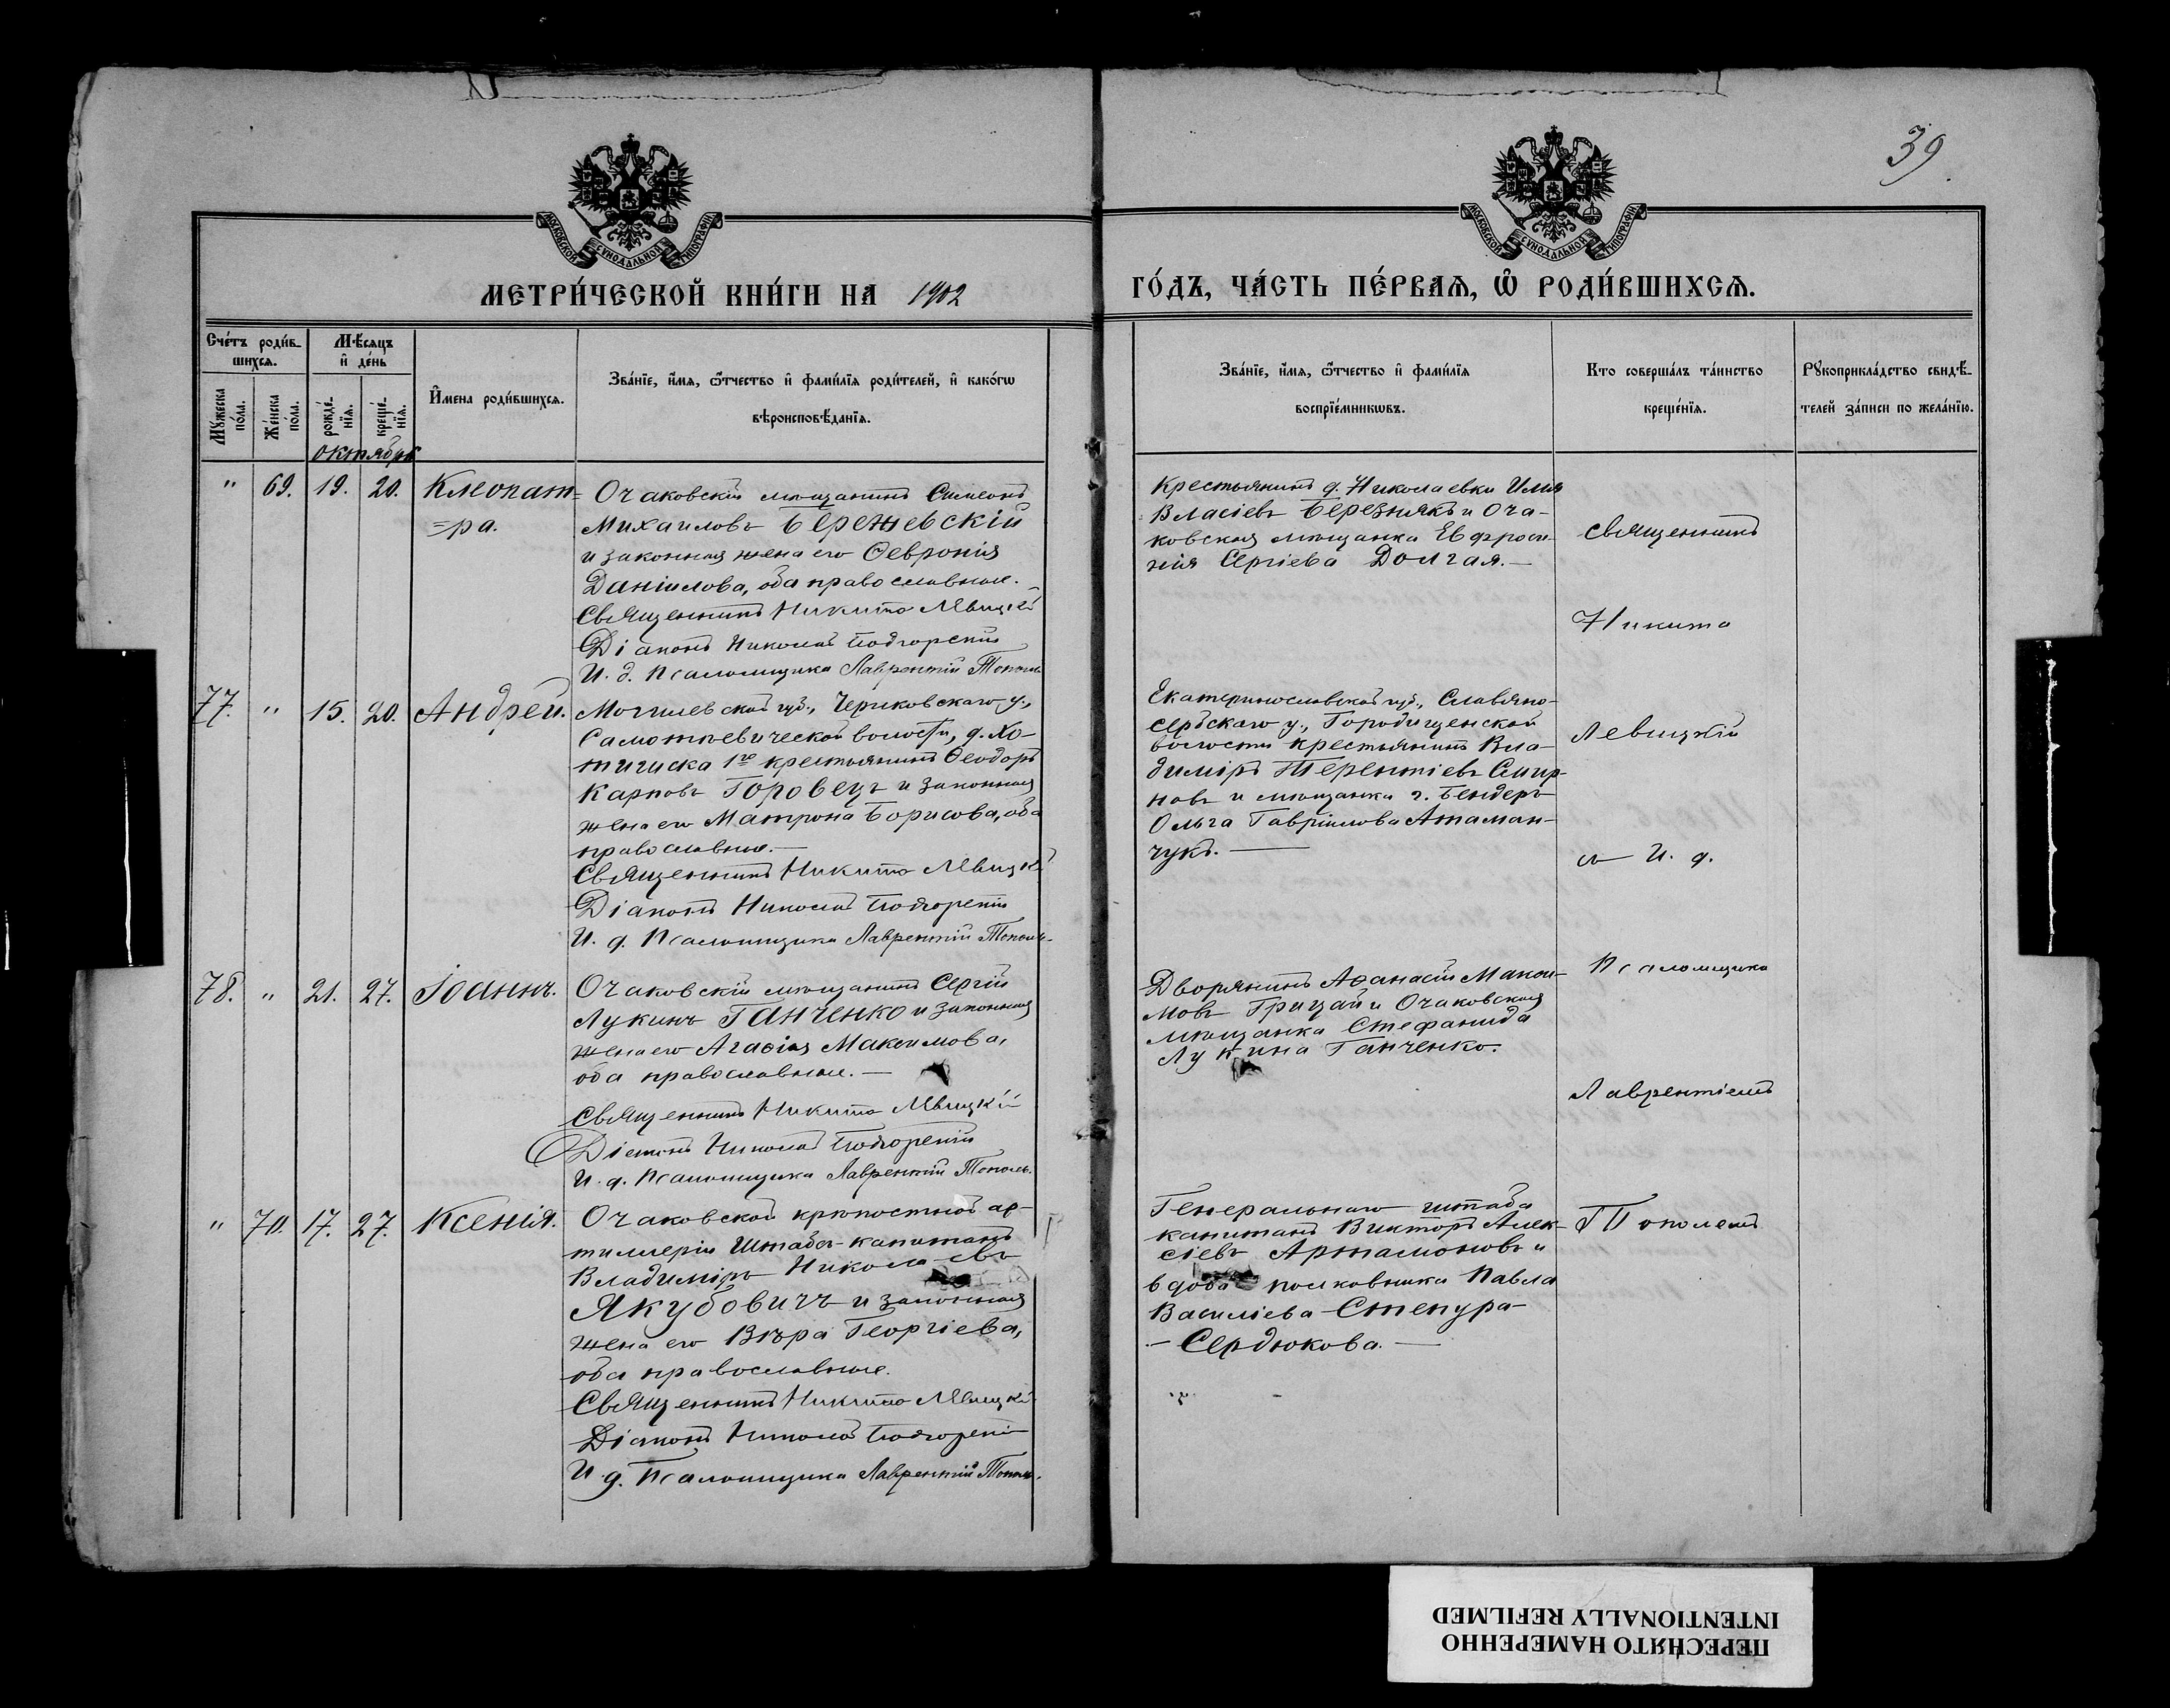 39
МОСКОВСКОЙ СУНОДАЛЬНОЙ ТИПОГРАФІИ
МОСКОВСКОЙ СУНОДАЛЬНОЙ ТИПОГРАФІИ
МЕТРИ́ЧЕСКОЙ КНИ́ГИ НА 1902
ГО́ДЪ, ЧА́СТЬ ПЕ́РВАѦ, Ѡ҆ РОДИ́ВШИХСѦ.
Сче́тъ роди́в-
шихсѧ.
Мꙋ́жеска по́ла.
Же́нска по́ла.
Мѣ́сѧцъ
и҆ де́нь
рожде́-
нїѧ.
креще́-
нїѧ.
октябрь
И҆́мена роди́вшихсѧ.
Зва́нїе, и҆́мѧ, ѻ҆́тчество и҆ фами́лїѧ роди́телей, и҆ како́гѡ
вѣроисповѣ́данїѧ.
Зва́нїе, и҆́мѧ, ѻ҆́тчество и҆ фами́лїѧ
воспрїе́мникѡвъ.
Кто соверша́лъ та́инство
креще́нїѧ.
Рꙋкоприкла́дство свидѣ́-
телей за́писи по жела́нїю.
" 69. 19. 20. Клеопат=
=ра.
Очаковскій мѣщанинъ Симеонъ
Михаиловъ Бережевскій
и законная жена его Ѳевронія
Даніилова, оба православные.
Священникъ Никита Лѣвицкій
Діаконъ Николай Подгорскій
И. д. Псаломщика Лаврентій Тополь
Крестьянинъ д. Николаевки Илія
Власіевъ Березнякъ и Оча-
ковская мѣщанка Евфроси-
нія Сергіева Долгая.—
77. " 15. 20. Андрей.
Могилевской губ., Чериковскаго у.,
Самотѣевической волости, д. Хо-
типиска 1го крестьянинъ Ѳеодоръ
Карповъ Горовецъ и законная
жена его Матрона Борисова, оба
православные.—
Священникъ Никита Лѣвицкій
Діаконъ Николай Подгорскій
И. д. Псаломщика Лаврентій Тополь.
Екатеринославской губ., Славяно-
сербскаго у., Городищенской
волости крестьянинъ Вла-
диміръ Терентіевъ Смир-
новъ и мѣщанка г. Бендеръ
Ольга Гавріилова Атаман-
чукъ.—
78. " 21. 27. Іоаннъ.
Очаковскій мѣщанинъ Сергій
Лукинъ Ганченко и законная
жена его Агаѳія Максимова,
оба православные.—
Священникъ Никита Лѣвицкій
Діаконъ Николай Подгорскій
И. д. Псаломщика Лаврентій Тополь.
Дворянинъ Аѳанасій Макси-
мовъ Грицай и Очаковская
мѣщанка Стефанида
Лукина Ганченко.
" 70. 17. 27. Ксенія.
Очаковской крѣпостной ар-
тиллеріи Штабсъ-капитанъ
Владиміръ Николаевъ
Якубовичъ и законная
жена его Вѣра Георгіева,
оба православные.
Священникъ Никита Лѣвицкій
Діаконъ Николай Подгорскій
И. д. Псаломщика Лаврентій Тополь.
Генеральнаго штаба
капитанъ Викторъ Алек-
сіевъ Артамоновъ и
вдова полковника Павла
Василіева Степура-
- Сердюкова.—
священникъ
Никита
Левицкій
съ И. д.
Псаломщика
Лаврентіемъ
Тополемъ
ПЕРЕСНЯТО НАМЕРЕННО
INTENTIONALLY REFILMED